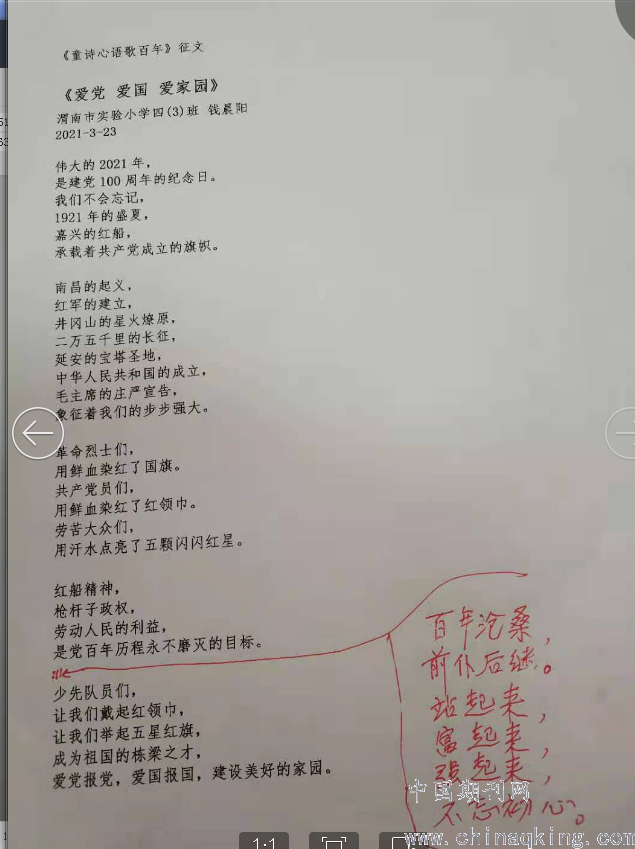 《童诗心语歌百年》征文
《爱党 爱国 爱家园》
渭南市实验小学四(3)班 钱晨阳
2021-3-23
伟大的 2021 年，
是建党 100 周年的纪念日。
我们不会忘记，
1921 年的盛夏，
嘉兴的红船，
承载着共产党成立的旗帜。
南昌的起义，
红军的建立，
井冈山的星火燎原，
二万五千里的长征，
延安的宝塔圣地，
中华人民共和国的成立，
毛主席的庄严宣告，
象征着我们的步步强大。
革命烈士们，
用鲜血染红了国旗。
共产党员们，
用鲜血染红了红领巾。
劳苦大众们，
用汗水点亮了五颗闪闪红星。
红船精神，
枪杆子政权，
劳动人民的利益，
是党百年历程永不磨灭的目标。
百年沧桑，
前仆后继。
站起来，
富起来，
强起来，
不忘初心。
少先队员们，
让我们戴起红领巾，
让我们举起五星红旗，
成为祖国的栋梁之才，
爱党报党，爱国报国，建设美好的家园。
中国期刊网
www.chinaqking.com
1:1